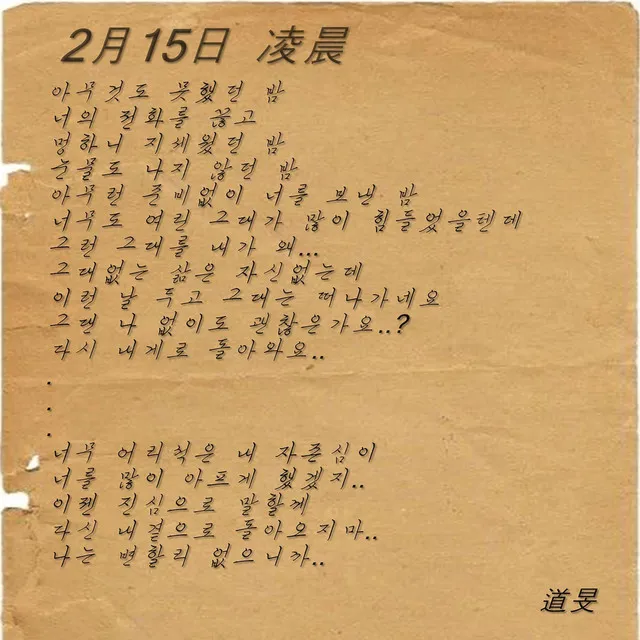 2月 15日 凌晨
아무것도 못했던 밤
너의 전화를 끊고
멍하니 지세웠던 밤
눈물도 나지 않던 밤
아무런 준비없이 너를 보낸 밤
너무도 여린 그대가 많이 힘들었을텐데
그런 그대를 내가 왜...
그대없는 삶은 자신없는데
이런 날 두고 그대는 떠나가네요
그댄 나 없이도 괜찮은가요..?
다시 내게로 돌아와요..
.
.
.
너무 어리석은 내 자존심이
너를 많이 아프게 했겠지..
이젠 진심으로 말할께
다신 내곁으로 돌아오지마..
나는 변할리 없으니까..
道旻